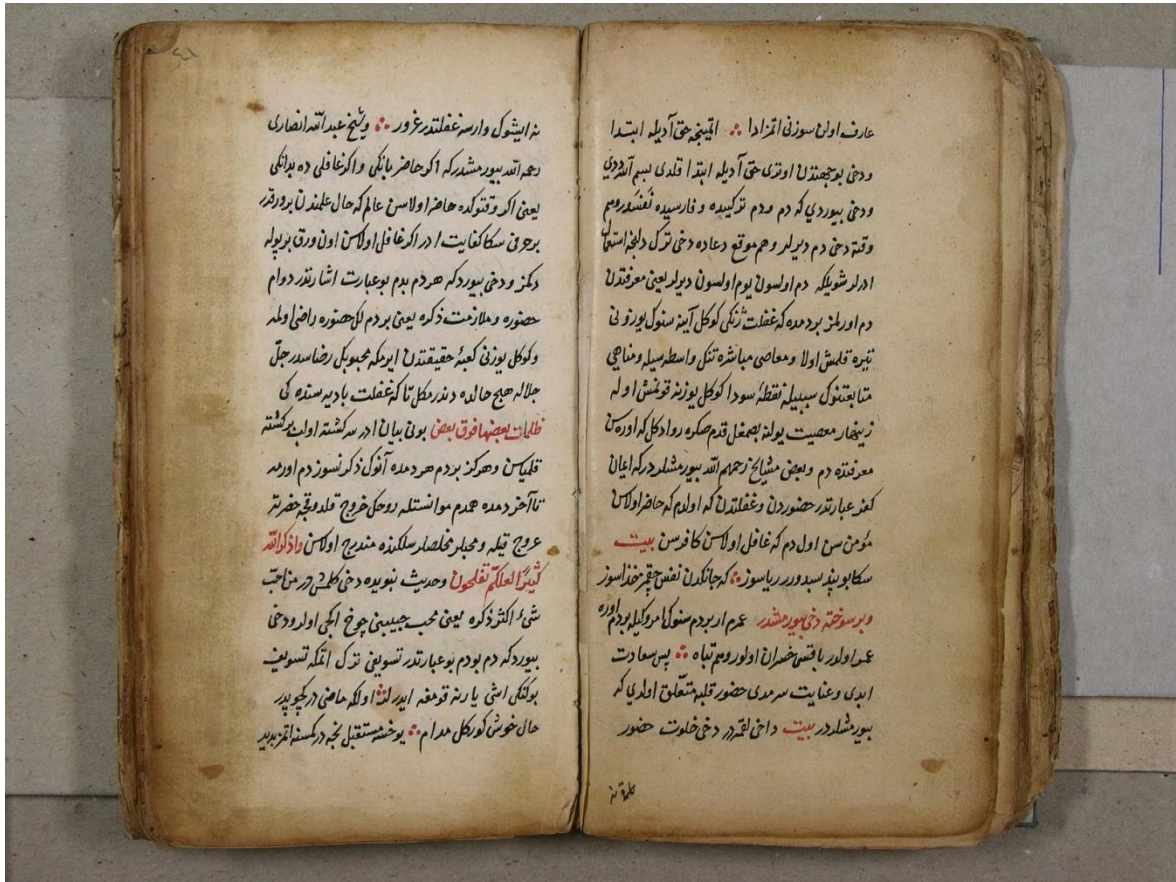 عارف اولن سوزنی اتمز ادا ∴ اتمینجه حق آدیله ابتدا
ودخی بوجهتدن اوتری حق آدیله ابتدا قلدی بسم الله دیدی
ودخی بیوردی که دم ودم ترکیبده وفارسیده نفسدر وهم
وقته دخی دم دیرلر وهم موقع دعاده دخی ترک دلنجه استعمال
ادرلر شویلکه دم اولسون یوم اولسون دیرلر یعنی معرفتدن
دم اورلمز بر دمده که غفلت ژنکی کوکل آینه سنوک یوزونی
تیره قلمش اولا ومعاصی مباشره تنک واسطه سیله ومناهی
متابعتنوک سببیله نقطهٔ سودا کوکل یوزینه قونمش اوله
زینهار معصیت یولنه بصمغل قدم صکره روا دکل که اوره سن
معرفتده دم وبعض مشایخ رحمهم الله بیورمشلر درکه اعیان
کفر عبارتدر حضوردن وغفلتدن که اولدم که حاضر اولاسن
مؤمن سن اول دم که غافل اولاسن کافرسن بیت
سکا بو پند سبدورر ریاسوز ∴ که جانکدن نفس چقمز خداسوز
وبر سوخته دخی بیورمشدر عمرم ار بر دم سنوک امروکیله بر دم اوره
عمر اولور باقیسی خسران اولور وهم تباه ∴ پس سعادت
ابدی وعنایت سرمدی حضور قلبه متعلق اولدی که
بیورمشلر در بیت داخی لقمه در دخی خلوت حضور
نه ایشوک وارسه غفلتدر غرور ∴ وشیخ عبدالله انصاری
رحمه الله بیورمشدرکه اکر حاضر بانکی واکر غافلی ده بدانکی
یعنی اکر وقتوکده حاضر اولاسن عالم که حال علمندن بر ورقدر
بر حرفی سکا کفایت ادر اکر غافل اولاسن اون ورق بر پوله
دکمز ودخی بیوردکه هر دم بدم بو عبارت اشارتدر دوام
حضوره وملازمت ذکره یعنی بر دم لک حضوره راضی اولمه
وکوکل یوزنی کعبهٔ حقیقتدن ایرمکه محبوبکل رضاسدر جل
جلاله هیچ حالده دندرمکل تا که غفلت بادیه سنده کی
ظلمات بعضها فوق بعض بونی بیان ادر سرکشته اولب برکشته
قلمیاسن وهرکز بر دم هر دمده آنوک ذکرنسوز دم اورمه
تا آخر دمده همدم موانستله روحک خروج قلدوقجه حضرته
عروج قیله ومحبلر مخلصلر سلکنده مندرج اولاسن واذکروا الله
کثیرًا لعلکم تفلحون وحدیث نبویده دخی کلمش در من احب
شیء اکثر ذکره یعنی محب حبیبنی چوخ اکجی اولر ودخی
بیوردکه دم بودم بو عبارتدر تسویفی ترک اتمکه تسویف
بوکنکی اشی یارنه قومغه ایدرلر ∴ اولکه ماضی در کچوپدر
حال خوش کورکل مدام ∴ یوخسه مستقبل نجه در کمسنه اتمز بدید